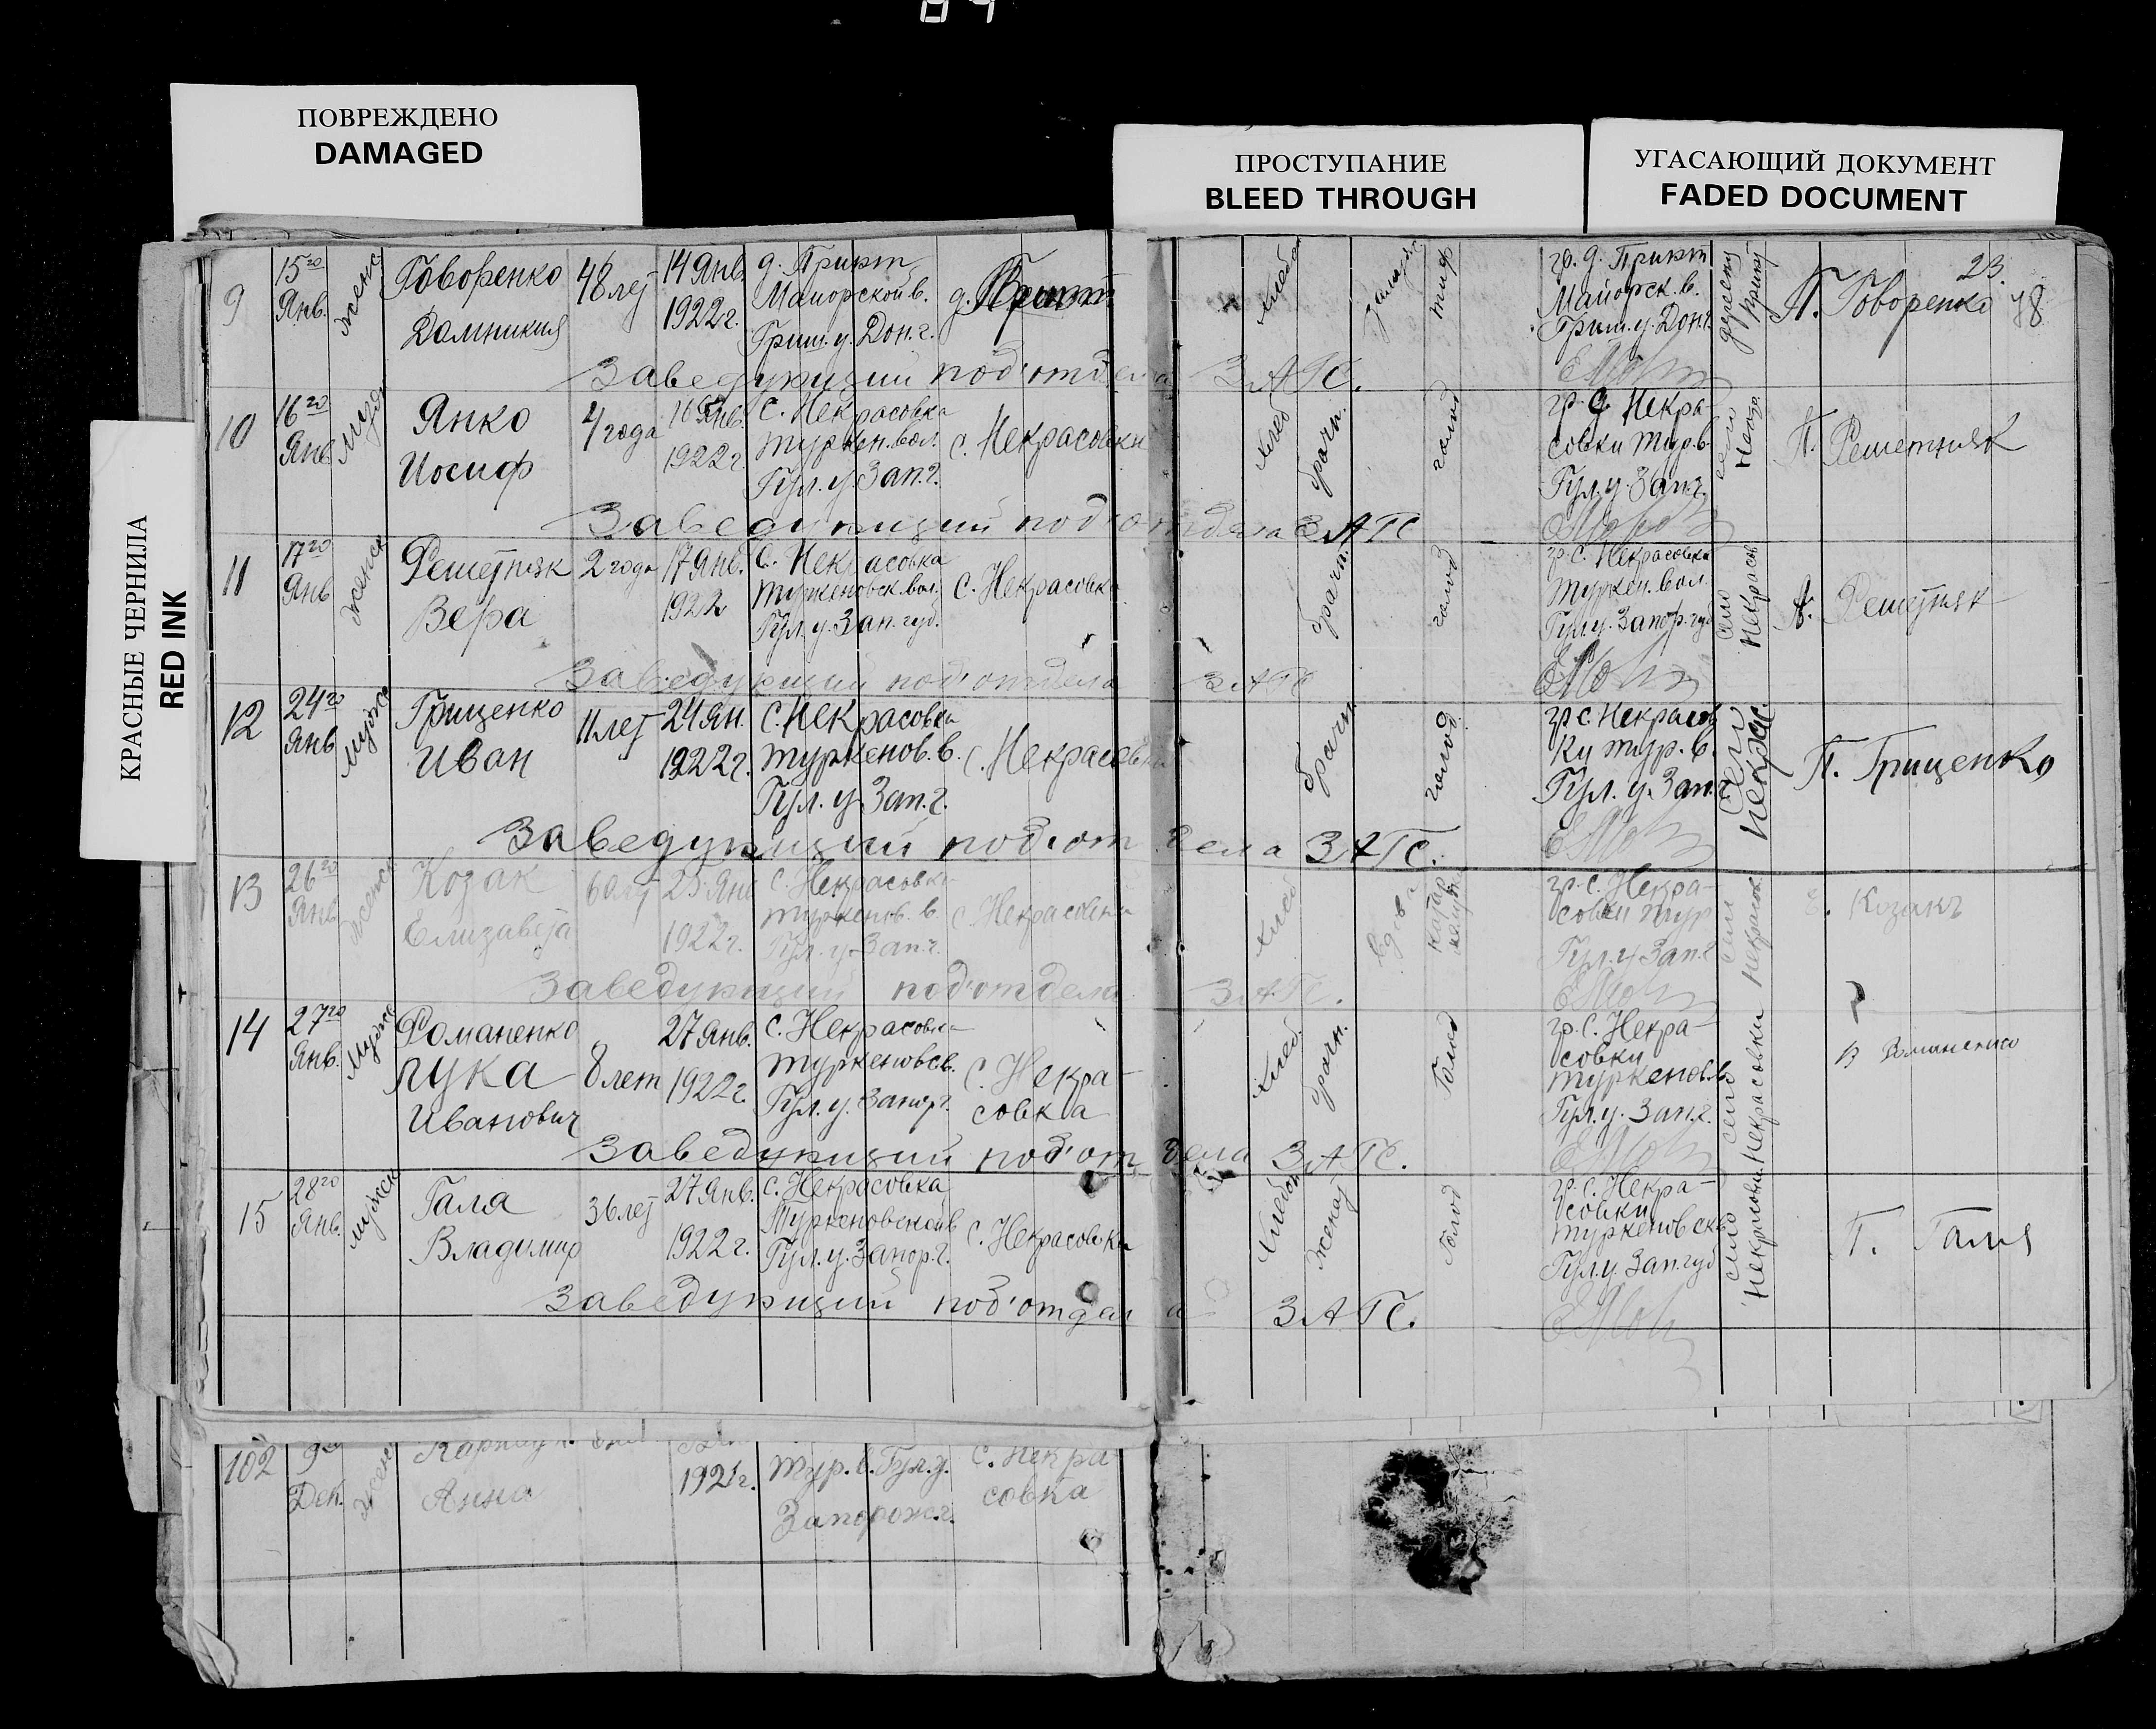 ПОВРЕЖДЕНО
DAMAGED
ПРОСТУПАНИЕ
BLEED THROUGH
УГАСАЮЩИЙ ДОКУМЕНТ
FADED DOCUMENT
КРАСНЫЕ ЧЕРНИЛА
RED INK
23.
9 15го Янв. женс Говоренко 48 лет 14 Янв. 1922 г.
д. Прият
Майорской в.
Гриш. у. Дон. г.
тиф
гр. д. Прият
Майорск. в.
Гриш. у. Дон. г.
П. Говоренко
Заведующий под'отдела ЗАГС.
10 16го Янв. Янко Иосиф 4 года 16 Янв. 1922 г.
с. Некрасовка
туркен. вол.
Гул. у. Зап. г.
с. Некрасовки
хлеб брачн. голод
гр. с. Некра-
совки тур. в
Гул. у. Зап. г.
П. Решетняк
Заведующий под'отдела ЗАГС
11 17го Янв женск Решетняк Вера 2 года 17 Янв. 1922
с. Некрасовка
туркеновск. вол.
Гул. у. Зап. губ.
с. Некрасовка
брачн. голод
гр. с. Некрасовка
туркен. вол.
Гул. у. Запор. губ
село Некрасов
Решетняк
Заведующий под'отдела ЗАГС
12 24го Янв мужск Грищенко Иван 11 лет 24 Ян. 1922 г.
с. Некрасовка
туркенов. в.
Гул. у. Зап. г.
с. Некрасовки
брачн голод
гр с. Некрасов
ки тур. в.
Гул. у. Зап. г
село Некрас.
П. Грищенко
Заведующий под'отдела ЗАГС.
13 26го Янв женск Козак Елизавета 60 лет 25 Янв 1922 г.
с. Некрасовка
туркенов. в.
Гул. у. Зап. г.
с. Некрасовки
хлеб вдова
гр. с. Некра-
совки тур
Гул. у. Зап. г
село Некрасов.
Е. Козакъ
Заведующий под'отдела ЗАГС.
14 27го Янв. мужс Романенко Лука Иванович 8 лет 27 Янв. 1922 г.
с. Некрасовка
туркенов. в.
Гул. у. Запор. г.
с. Некра-
совка
хлеб. брачн. Голод
гр. с. Некра-
совки
туркенов. в.
Гул. у. Зап. г.
село Некрасовки
Романенко
Заведующий под'отдела ЗАГС.
15 28го Янв. мужск Галя Владимир 36 лет 27 Янв. 1922 г.
с. Некрасовка
Туркеновской в
Гул. у. Запор. г.
с. Некрасовка
женат Голод
гр. с. Некра-
совки
туркеновск в
Гул. у. Зап. губ
село Некрасовки
П. Галя
Заведующий под'отдела ЗАГС.
102 9го Дек. женс Анна 1921 г.
Тур. в. Гул. у.
Запорож. г.
с. Некра
совка